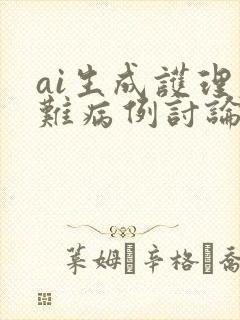 ai生成護理
難病例討論
葉姆·辛格·喬